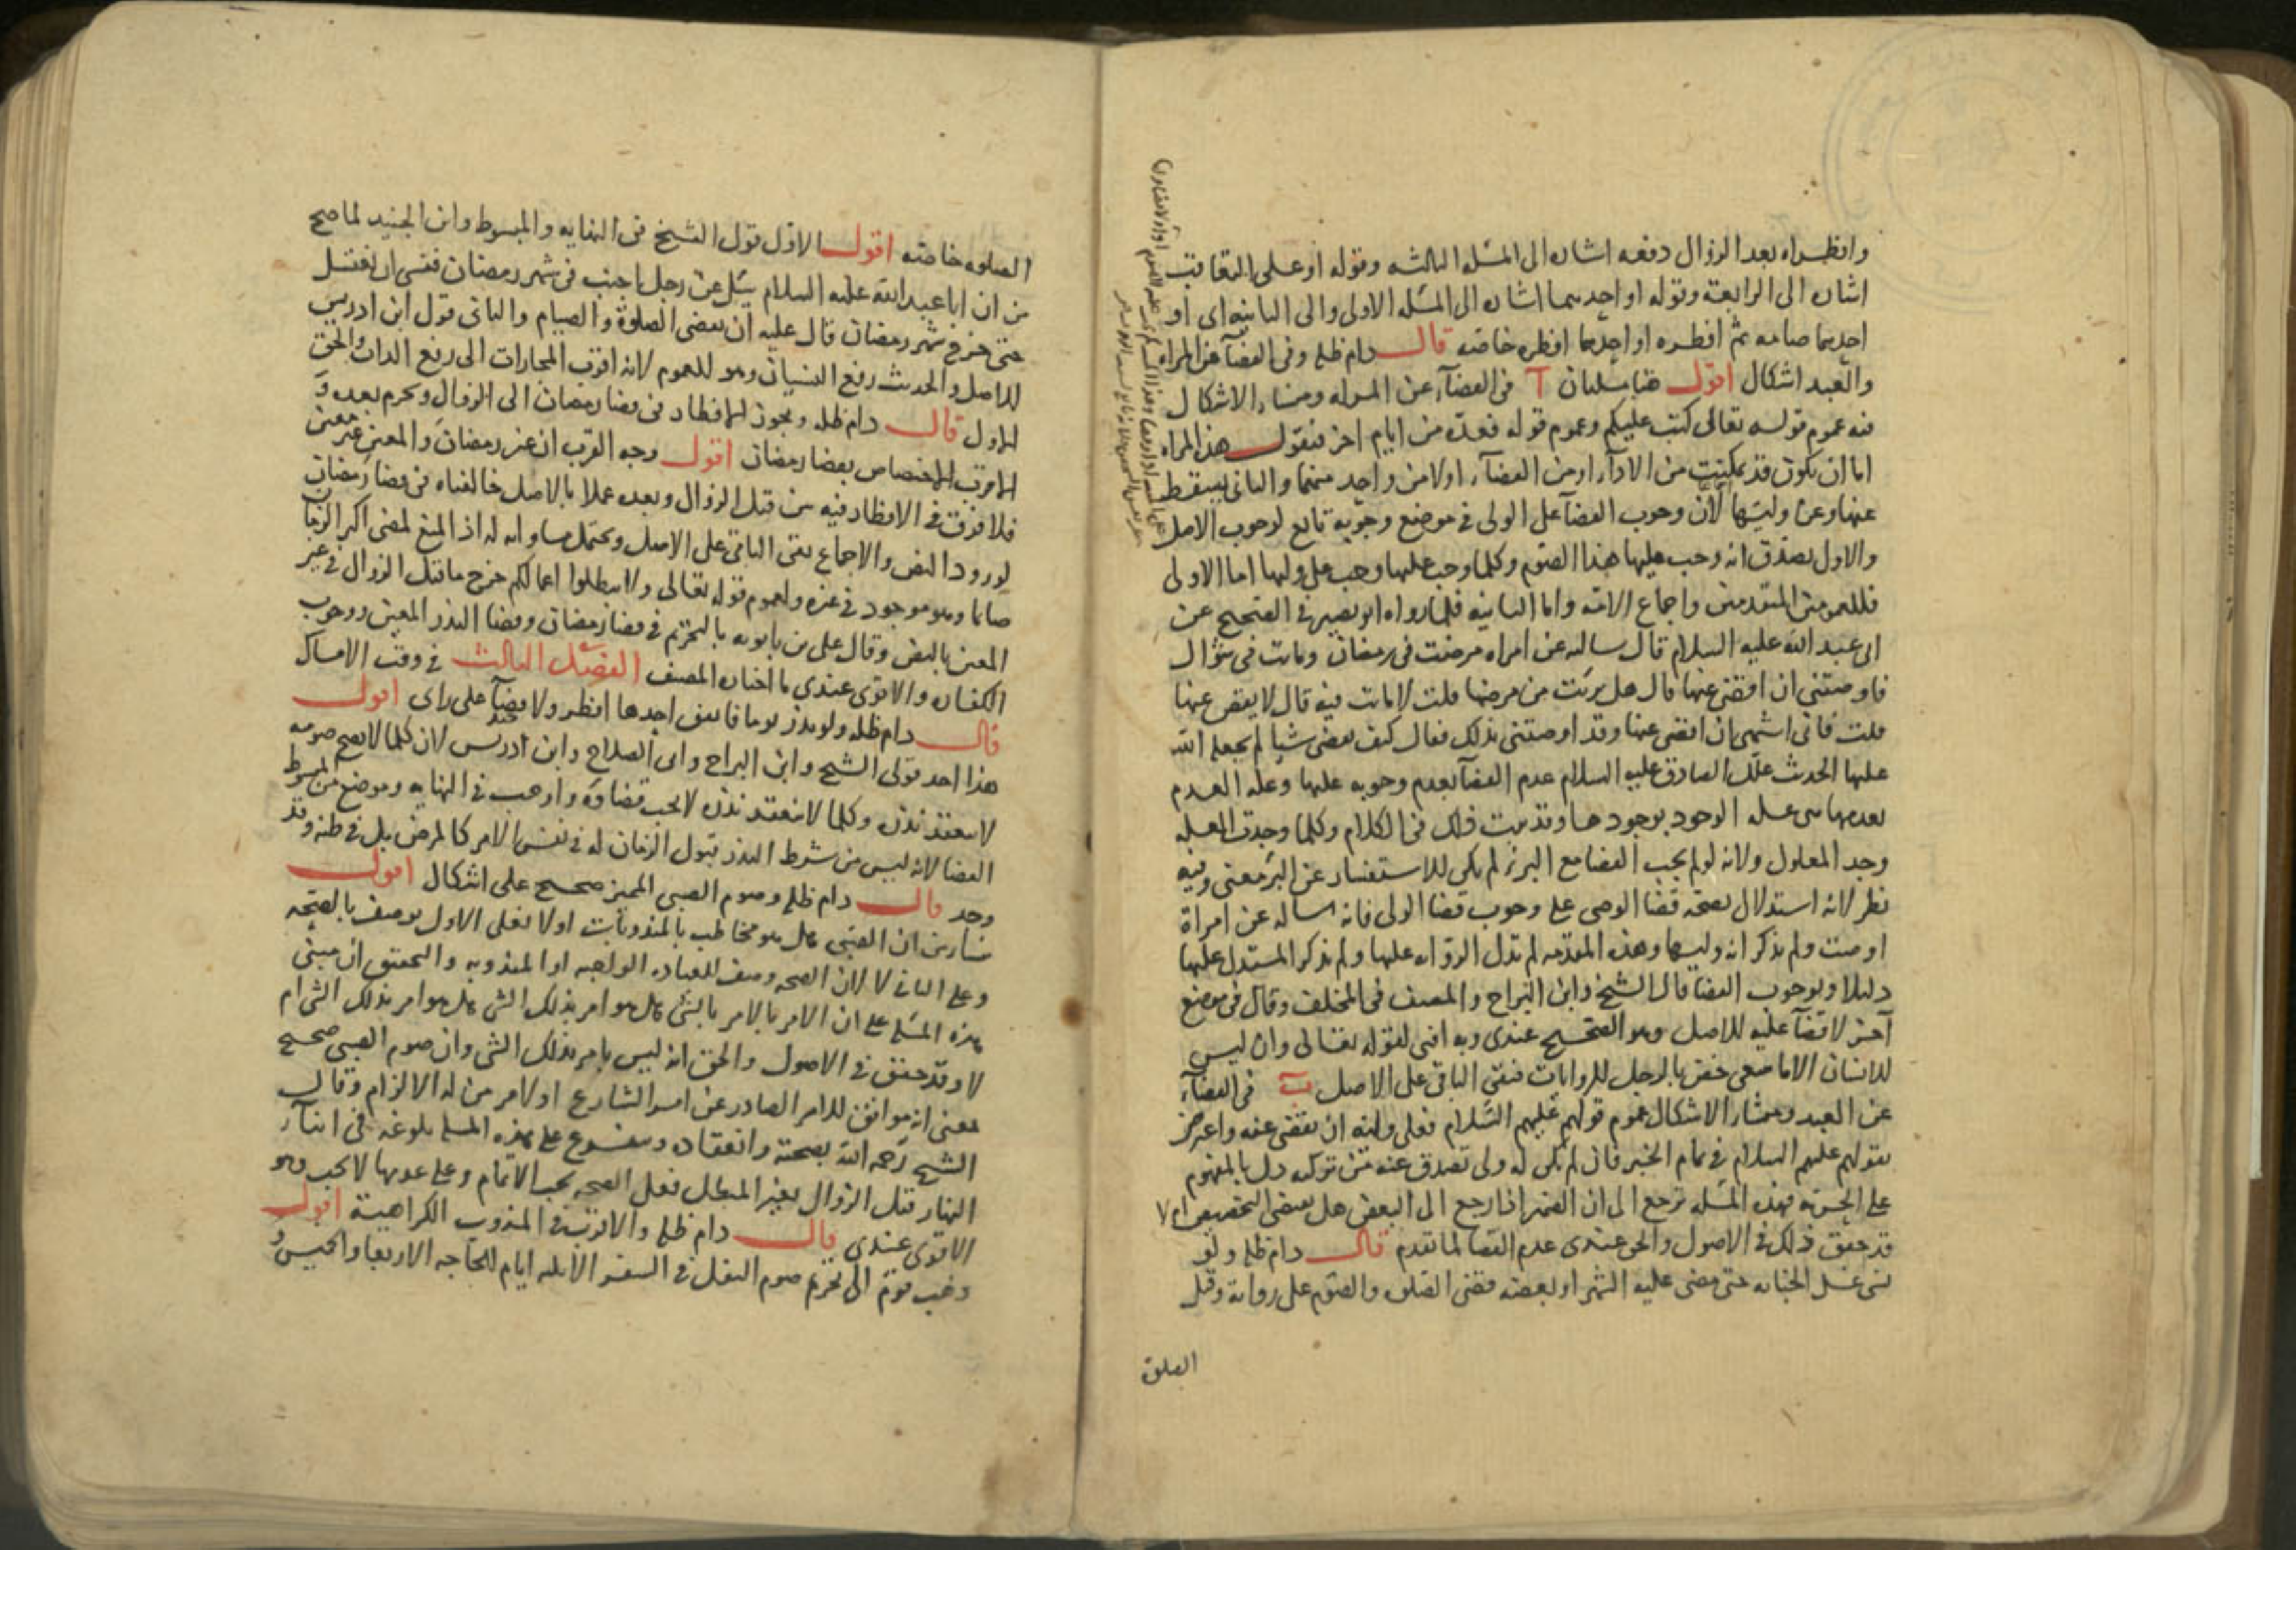 وافطراه بعد الزوال دفعه اشاره الى المسله الثالثه وقوله او على التعاقب
اشاره الى الرابعة وقوله او احدهما اشاره الى المسله الاولى والى الثانيه اى او
احدهما صامه ثم افطره او احدهما افطره خاصه قال دام ظله وفى القضآ عن المراه
والعبد اشكال اقول هنا مسلتان آ فى القضآء عن المراه ومنشاء الاشكال
فيه عموم قوله تعالى كتب عليكم وعموم قوله فعدة من ايام اخر فنقول هذه المراه
اما ان يكون قد تمكنت من الادآء او من القضآء اولا من واحد منهما والثانى يسقط
عنها وعن وليها لان وجوب القضآ على الولى فى موضع وجوبه تابع لوجوب الاصل
والاول يصدق انه وجب عليها هذا الصوم وكلما وجب عليها وجب على وليها اما الاولى
فللعمومين المتقدمين واجماع الامة واما الثانيه فلما رواه ابو بصير فى الصحيح عن
ابى عبد الله عليه السلام قال سالته عن امراه مرضت فى رمضان وماتت فى شوال
فاوصتنى ان اقضى عنها قال هل برئت من مرضها قلت لا ماتت فيه قال لا يقض عنها
قلت فانى اشتهى ان اقضى عنها وقد اوصتنى بذلك فقال كيف تقضى شيا لم يجعله الله
عليها الحديث علل الصادق عليه السلام عدم القضآ بعدم وجوبه عليها وعله العدم
بعدمها هى عله الوجود بوجودها وقد بينت ذلك فى الكلام وكلما وجدت العله
وجد المعلول ولانه لو لم يجب القضا مع البرء لم يكن للاستفسار عن البرء معنى وفيه
نظر لانه استدلال بصحة قضا الوصى على وجوب قضا الولى فانه ساله عن امراة
اوصت ولم يذكر انه وليها وهذه المقدمه لم تدل الروايه عليها ولم يذكر المستدل عليها
دليلا وبوجوب القضا قال الشيخ وابن البراج والمصنف فى المختلف وقال فى موضع
آخر لا قضآ عليه للاصل وهو الصحيح عندى وبه افتى لقوله تعالى وان ليس
للانسان الا ما سعى خص بالرجل للروايات فبقى الباقى على الاصل ب فى القضآء
عن العبد ومنشا الاشكال عموم قولهم عليهم السلام فعلى وليه ان يقضى عنه واعترض
بقولهم عليهم السلام فى تمام الخبر فان لم يكن له ولى تصدق عنه من تركته دل بالمفهوم
على الحريه فهذه المسله ترجع الى ان الضمير اذا رجع الى البعض هل يقتضى التخصيص ام لا
قد حقق ذلك فى الاصول والحق عندى عدم القضا لما تقدم قال دام ظله ولو
نسى غسل الجنابه حتى مضى عليه الشهر او بعضه قضى الصلوه والصوم على رواية وقيل
الصلوة
الصلوه خاصه اقول الاول قول الشيخ فى النهايه والمبسوط وابن الجنيد لما صح
من ان ابا عبد الله عليه السلام سئل عن رجل اجنب فى شهر رمضان فنسى ان يغتسل
حتى خرج شهر رمضان قال عليه ان يقضى الصلوة والصيام والثانى قول ابن ادريس
للاصل والحديث رفع النسيان وهو للعموم لانه اقرب المجازات الى رفع الذات والحق
الاول قال دام ظله ويجوز الافطار فى قضا رمضان الى الزوال ويحرم بعده و
الاقرب الاختصاص بقضا رمضان اقول وجه القرب ان غير رمضان والمعين غير معين
فلا فرق فى الافطار فيه من قبل الزوال وبعده عملا بالاصل خالفناه فى قضا رمضان
لورود النص والاجماع بقى الباقى على الاصل ويحتمل مساواته له اذ المنع لمضى اكثر الزمان
صائما وهو موجود فى غيره ولعموم قوله تعالى ولا تبطلوا اعمالكم خرج ما قبل الزوال فى غير
المعين بالنص وقال على بن بابويه بالتحريم فى قضا رمضان وقضا النذر المعين ووجوب
الكفاره والاقوى عندى ما اختاره المصنف الفصل الثالث فى وقت الامساك
قال دام ظله ولو نذر يوما فاتفق احدها افطر ولا قضآ على راى اقول
هذا احد قولى الشيخ وابن البراج وابى الصلاح وابن ادريس لان كلما لا يصح صومه
لا ينعقد نذره وكلما لا ينعقد نذره لا يجب قضاؤه واوجب فى النهايه وموضع من المبسوط
القضا لانه ليس من شرط النذر قبول الزمان له فى نفس الامر كالمرض بل فى ظنه وقد
وجد قال دام ظله وصوم الصبى المميز صحيح على اشكال اقول
منشا من ان الصبى هل هو مخاطب بالمندوبات اولا فعلى الاول يوصف بالصحه
وعلى الثانى لا لان الصحه وصف للعباده الواجبه او المندوبه والتحقيق ان مبنى
هذه المسله على ان الامر بالامر بالشى هل هو امر بذلك الشى هل هو امر بذلك الشى ام
لا وقد حقق فى الاصول والحق انه ليس بامر بذلك الشى وان صوم الصبى صحيح
بمعنى انه موافق للامر الصادر عن امر الشارع اولا امر من له الالزام وقال
الشيخ رحمه الله بصحته وانعقاده ويتفرع على هذه المسله بلوغه فى اثنآء
النهار قبل الزوال بغير المبطل فعلى الصحه يجب الاتمام وعلى عدمها لا يجب وهو
الاقوى عندى قال دام ظله والاقرب فى المندوب الكراهية اقول
ذهب قوم الى تحريم صوم النفل فى السفر الا ثلثه ايام للحاجه الاربعا والخميس و